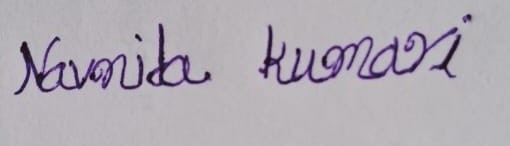 Navnita Kumari